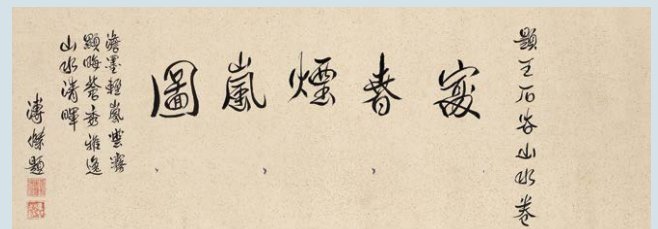 題王石谷山水卷
春煙嵐圖
澹墨輕嵐雲霧
顯晦蒼秀雅逸
山水清暉
溥傑題